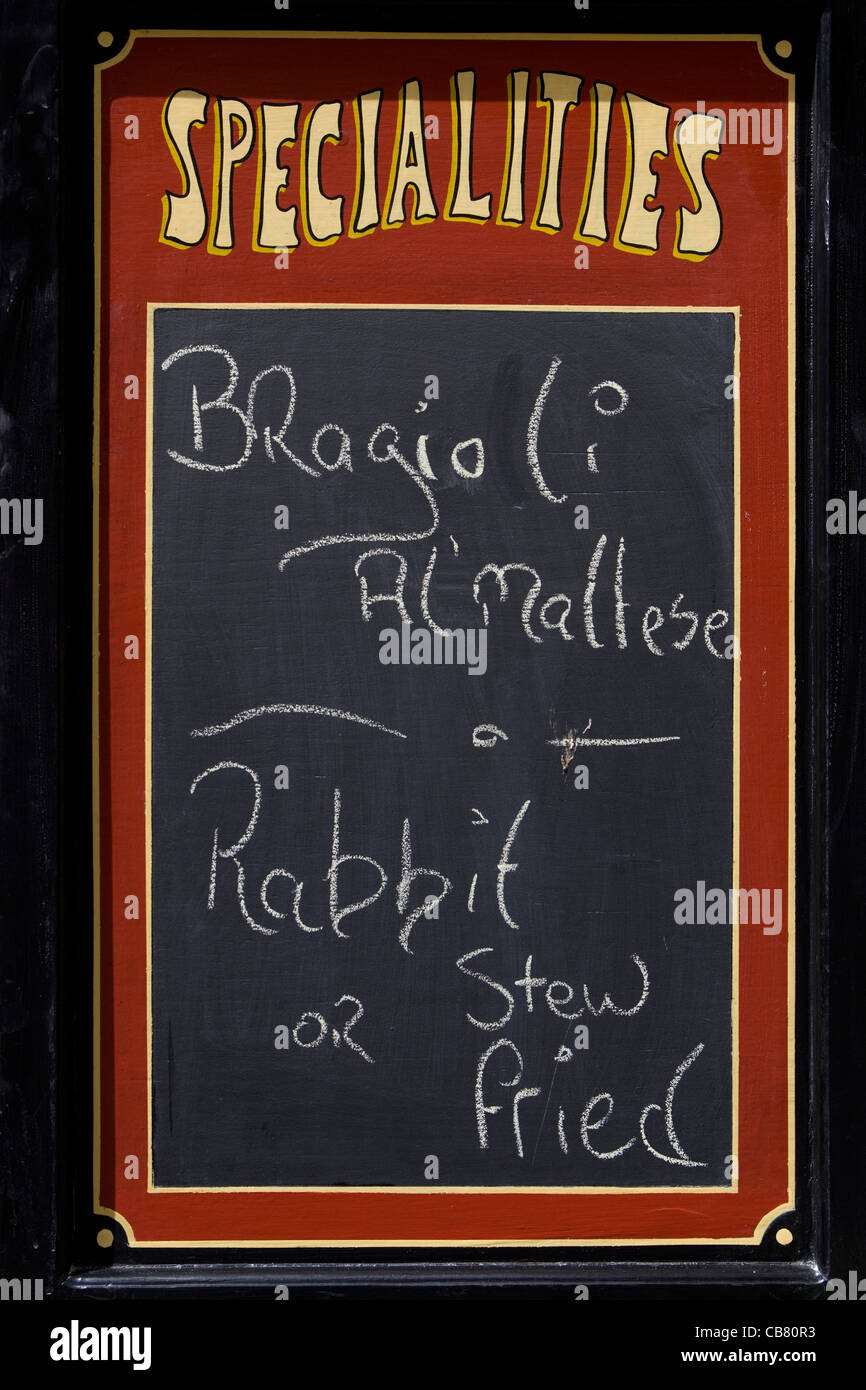 SPECIALITIES
BRagioli
Al'maltese
Rabbit
Stew
OR
Fried
alamy
Image ID: CB80R3
www.alamy.com